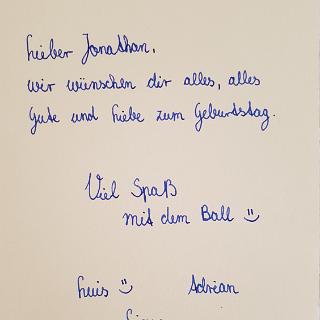 Lieber Jonathan,
wir wünschen dir alles, alles
Gute und Liebe zum Geburtstag.
Viel Spaß
mit dem Ball :)
Luis :) Adrian